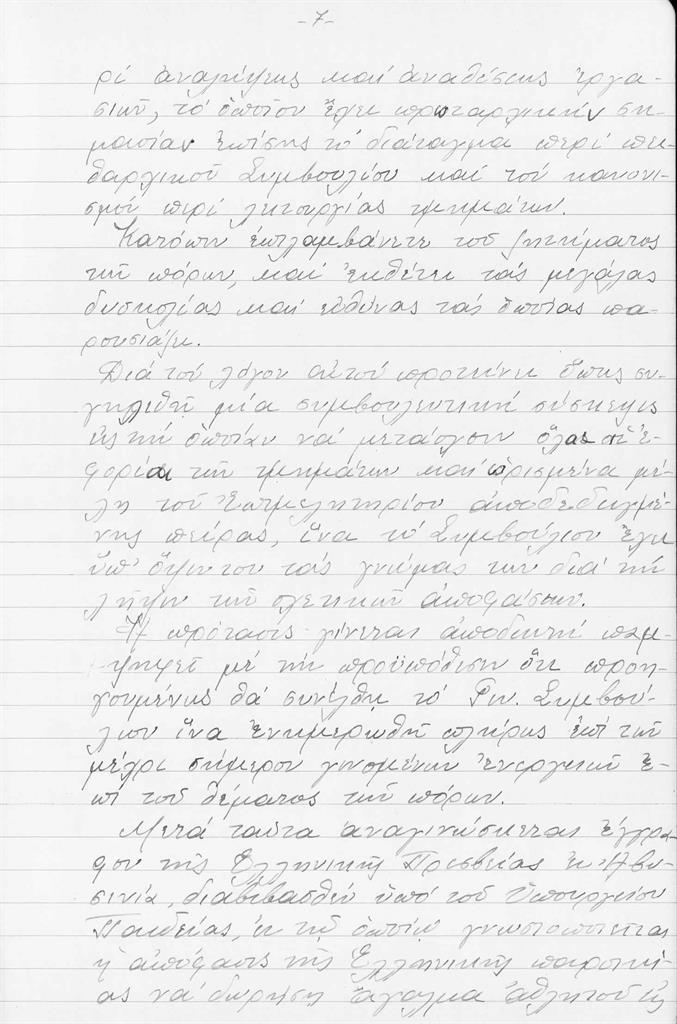 -7-
ρί ἀναλήψεως καί ἀναθέσεως ἐργα-
σιῶν, τό ὁποῖον ἔχει πρωταρχικήν ση-
μασίαν ἐπίσης τό διάταγμα περί πει-
θαρχικοῦ Συμβουλίου καί τοῦ κανονι-
σμοῦ περί λειτουργίας τμημάτων.
Κατόπιν ἐπιλαμβάνεται τοῦ ζητήματος
τῶν πόρων, καί ἐκθέτει τάς μεγάλας
δυσκολίας καί εὐθύνας τάς ὁποίας πα-
ρουσιάζει.
Διά τόν λόγον αὐτόν προτείνει ὅπως συ-
γκληθῆ μία συμβουλευτική σύσκεψις
εἰς τήν ὁποίαν νά μετάσχουν ὅλαι αἱ ἐ-
φορίαι τῶν τμημάτων καί ὡρισμένα μέ-
λη τοῦ Ἐπιμελητηρίου ἀποδεδειγμέ-
νης πείρας, ἵνα τό Συμβούλιον ἔχει
ὑπ' ὄψιν του τάς γνώμας των διά τήν
λήψιν τῶν σχετικῶν ἀποφάσεων.
Ἡ πρότασις γίνεται ἀποδεκτή παμ-
ψηφεί μέ τήν προϋπόθεσιν ὅτι προη-
γουμένως θά συνέλθη τό Γεν. Συμβού-
λιον ἵνα ἐνημερωθῆ πλήρως ἐπί τῶν
μέχρι σήμερον γενομένων ἐνεργειῶν ἐ-
πί τοῦ θέματος τῶν πόρων.
Μετά ταῦτα ἀναγινώσκεται ἔγγρα-
φον τῆς Ἑλληνικῆς Πρεσβείας ἐν Ἀβυ-
σσινία, διαβιβασθέν ὑπό τοῦ Ὑπουργείου
Παιδείας, ἐν τῶ ὁποίω γνωστοποιεῖται
ἡ ἀπόφασις τῆς Ἑλληνικῆς παροικί-
ας νά δωρήση ἄγαλμα ἀθλητοῦ εἰς